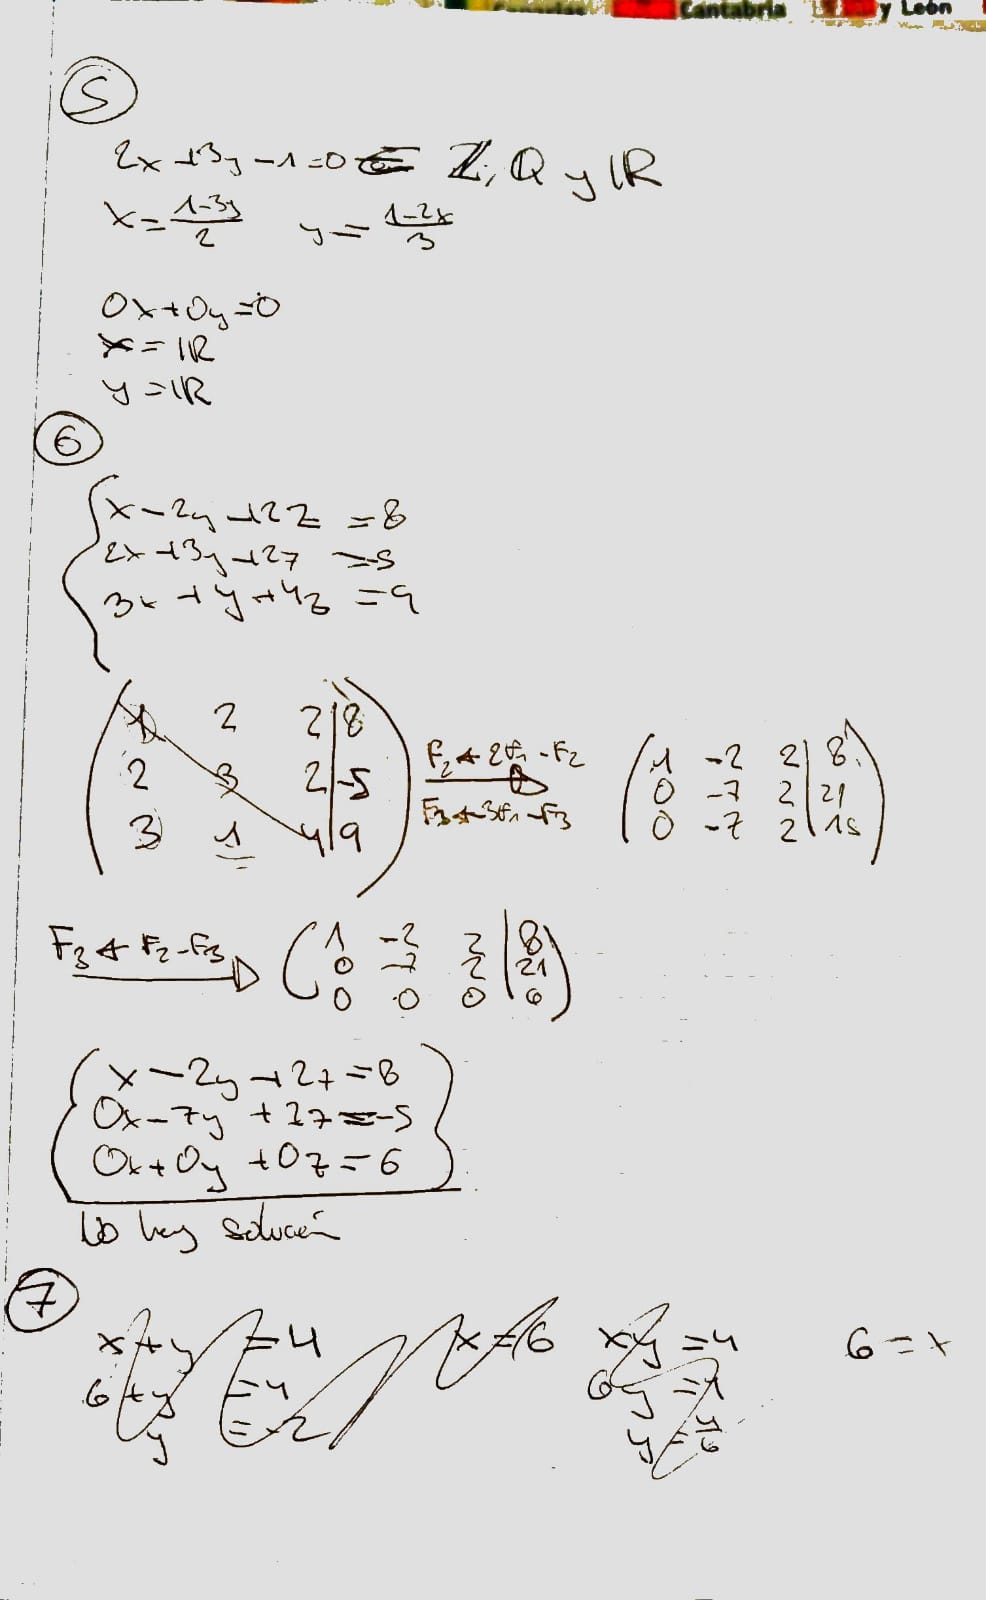 Cantabria y León
5
2x+3y-1=0 ∈ Z, Q y IR
x=(1-3y)/2 y=(1-2x)/3
0x+0y=0
x=IR
y=IR
6
x-2y+2z=8
2x+3y+2z=-5
3x+y+4z=9
1 2 2|8
2 3 2|-5
3 1 4|9
F2←2F1-F2
F3←3F1-F3
1 -2 2|8
0 -7 2|21
0 -7 2|15
F3←F2-F3
1 -2 2|8
0 -7 2|21
0 0 0|6
x-2y+2z=8
0x-7y+2z=-5
0x+0y+0z=6
No hay solución
7
x+y=4 x=6 xy=4 6=x
6+y=4 6y=1
y=-2 y=4/6